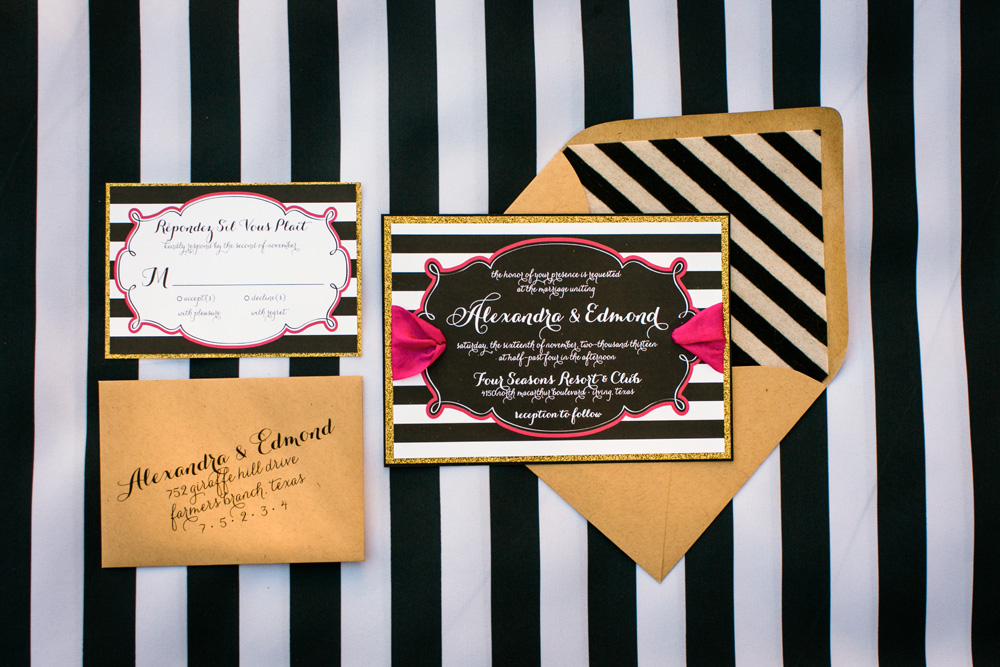 Répondez Sil Vous Plait
kindly respond by the second of november
M
accept(s)
with pleasure
decline(s)
with regret
Alexandra & Edmond
752 giraffe hill drive
farmers branch, texas
7 · 5 · 2 · 3 · 4
the honor of your presence is requested
at the marriage uniting
Alexandra & Edmond
saturday, the sixteenth of november, two-thousand thirteen
at half-past four in the afternoon
Four Seasons Resort & Club
4150 north macarthur boulevard - irving, texas
reception to follow